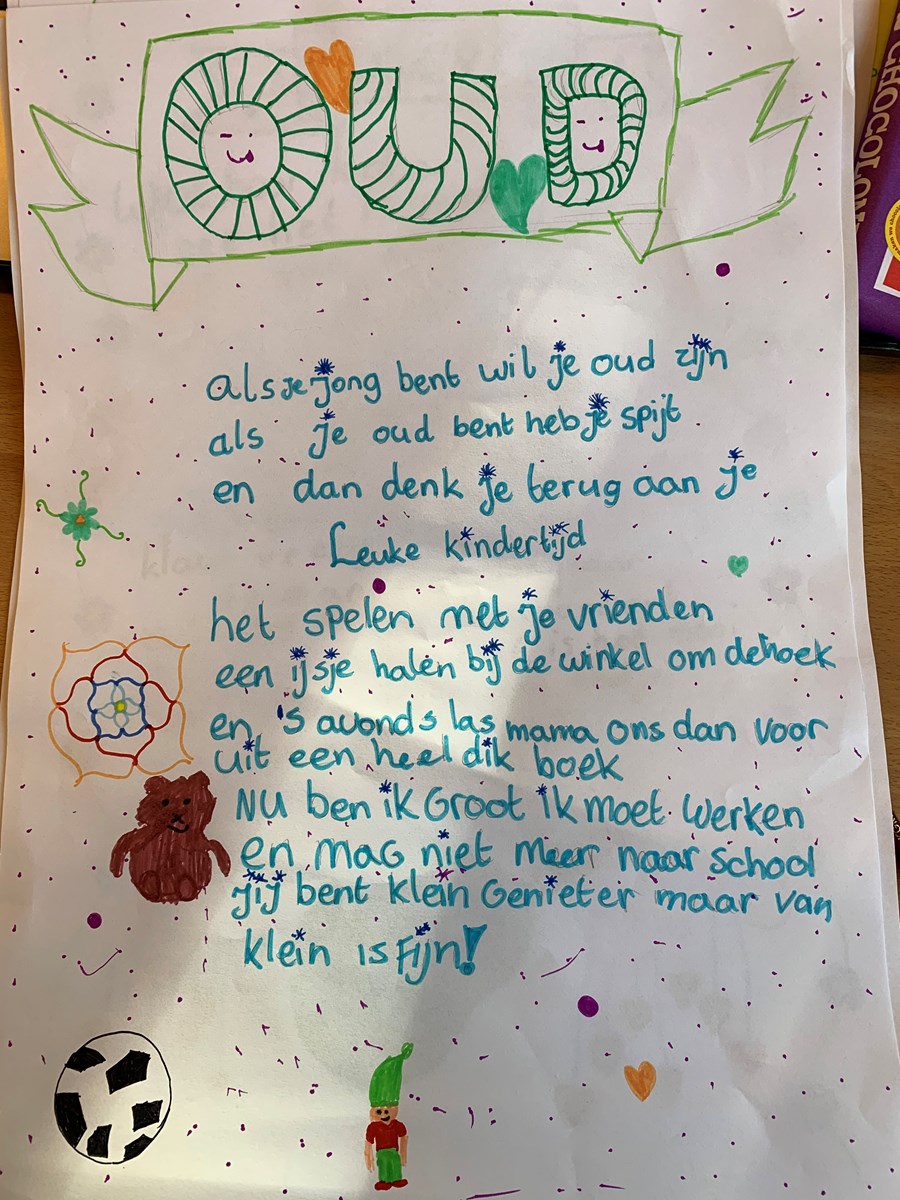 OUD
als je jong bent wil je oud zijn
als je oud bent heb je spijt
en dan denk je terug aan je
Leuke kindertijd
het spelen met je vrienden
een ijsje halen bij de winkel om de hoek
en 's avonds las mama ons dan voor
uit een heel dik boek
NU ben ik Groot ik moet werken
en MAG niet Meer naar School
jij bent klein Geniet er maar van
klein is Fijn!
CHOCOLON